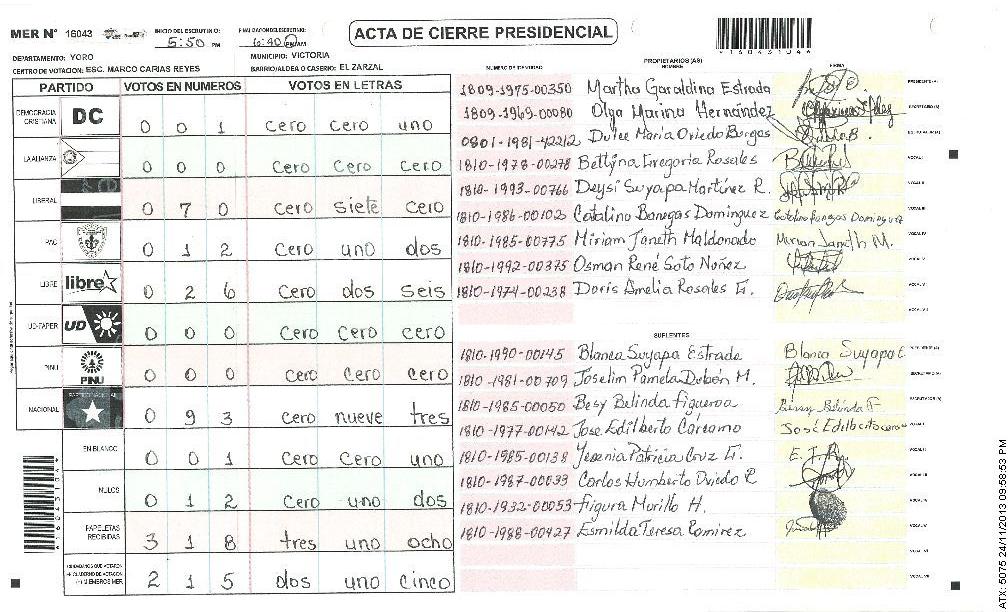 MER N° 16043
INICIO DEL ESCRUTINIO:
5:50 PM
6:40 PM/AM
ACTA DE CIERRE PRESIDENCIAL
DEPARTAMENTO: YORO
MUNICIPIO: VICTORIA
CENTRO DE VOTACION: ESC. MARCO CARIAS REYES
BARRIO/ALDEA O CASERIO: EL ZARZAL
PARTIDO VOTOS EN NUMEROS VOTOS EN LETRAS
DEMOCRACIA CRISTIANA DC 0 0 1 cero cero uno
LA ALIANZA 0 0 0 cero cero cero
LIBERAL 0 7 0 cero siete cero
PAC 0 1 2 cero uno dos
LIBRE libre 0 2 6 cero dos seis
UD-FAPER UD 0 0 0 cero cero cero
PINU PINU 0 0 0 cero cero cero
NACIONAL 0 9 3 cero nueve tres
EN BLANCO 0 0 1 cero cero uno
NULOS 0 1 2 cero uno dos
PAPELETAS RECIBIDAS 3 1 8 tres uno ocho
2 1 5 dos uno cinco
NUMERO DE IDENTIDAD
PROPIETARIOS (AS)
NOMBRE
FIRMA
1809-1975-00350 Martha Garaldina Estrada
1809-1969-00080 Olga Marina Hernández
0801-1981-42212 Dulce Maria Oviedo Borgas
1810-1978-00278 Bettyina Gregoria Rosales
1810-1993-00766 Deysi Suyapa Martínez R.
1810-1986-00102 Catalino Banegas Dominguez Catalino Banegas Dominguez
1810-1985-00775 Miriam Janeth Maldonado Miriam Janeth M.
1810-1992-00375 Osman René Soto Nuñez
1810-1974-00238 Doris Amelia Rosales G.
SUPLENTES
1810-1990-00145 Blanca Suyapa Estrada Blanca Suyapa E.
1810-1981-00709 Joselim Pamela Dubón M.
1810-1985-00050 Besy Belinda Figueroa
1810-1977-00142 Jose Edilberto Cárcamo
1810-1985-00138 Yesenia Patricia Cruz G.
1810-1987-00033 Carlos Humberto Oviedo R
1810-1932-00053 figura Murillo H.
1810-1988-00427 Esmilda Teresa Ramirez
ATX: 5075 24/11/2013 09:58:53 PM